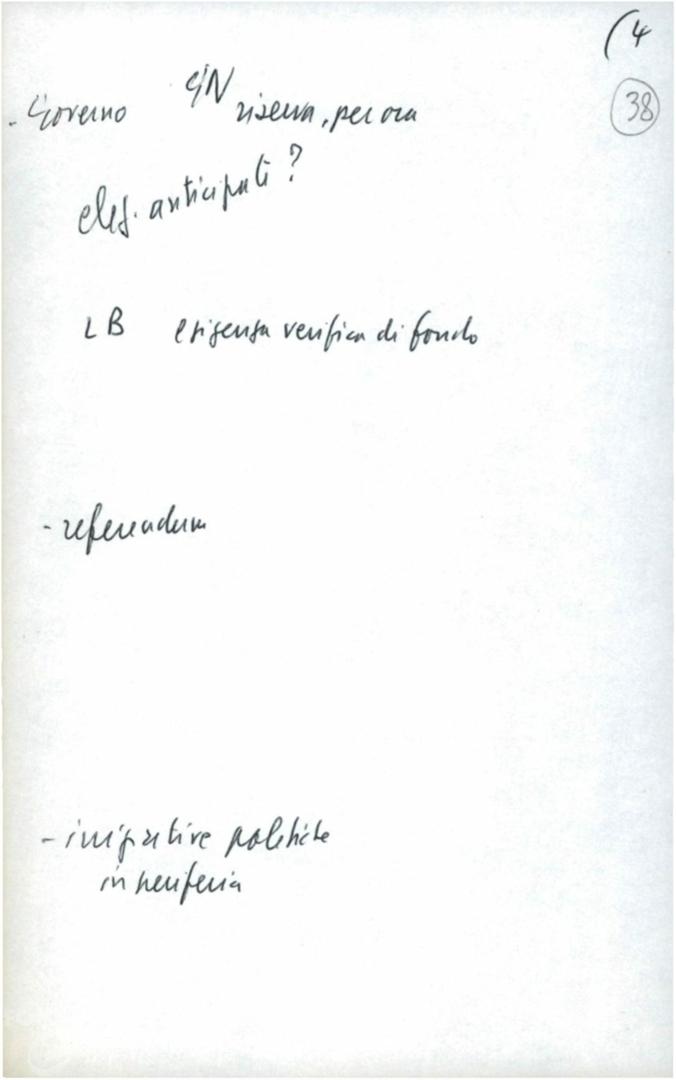 (4
38
- Governo GN riserva, per ora
elez. anticipate?
LB esigenza verifica di fondo
- referendum
- iniziative politiche
in periferia